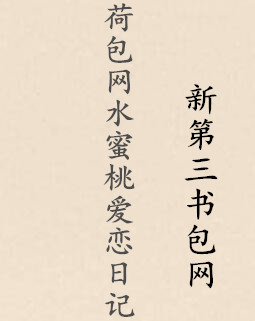 新第三书包网
荷包网水蜜桃爱恋日记